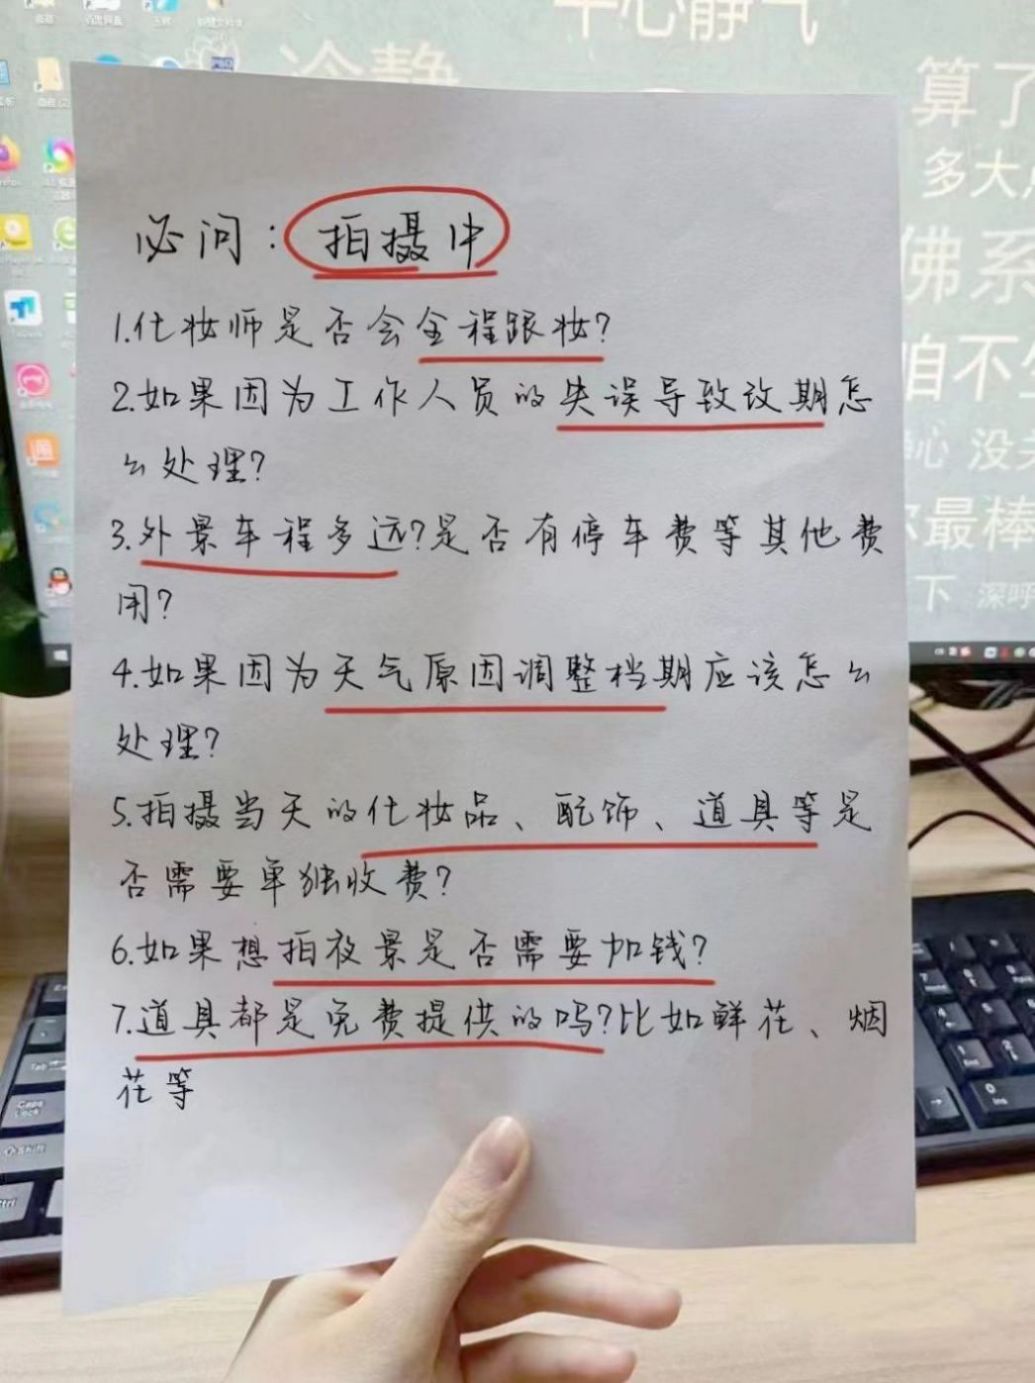 平心静气
冷静
算了
多大
佛系
咱不
心 没
你最棒
下 深呼
必问：拍摄中
1.化妆师是否会全程跟妆？
2.如果因为工作人员的失误导致改期怎
么处理？
3.外景车程多远？是否有停车费等其他费
用？
4.如果因为天气原因调整档期应该怎么
处理？
5.拍摄当天的化妆品、配饰、道具等是
否需要单独收费？
6.如果想拍夜景是否需要加钱？
7.道具都是免费提供的吗？比如鲜花、烟
花等
Caps
Lock
Tab
Ins